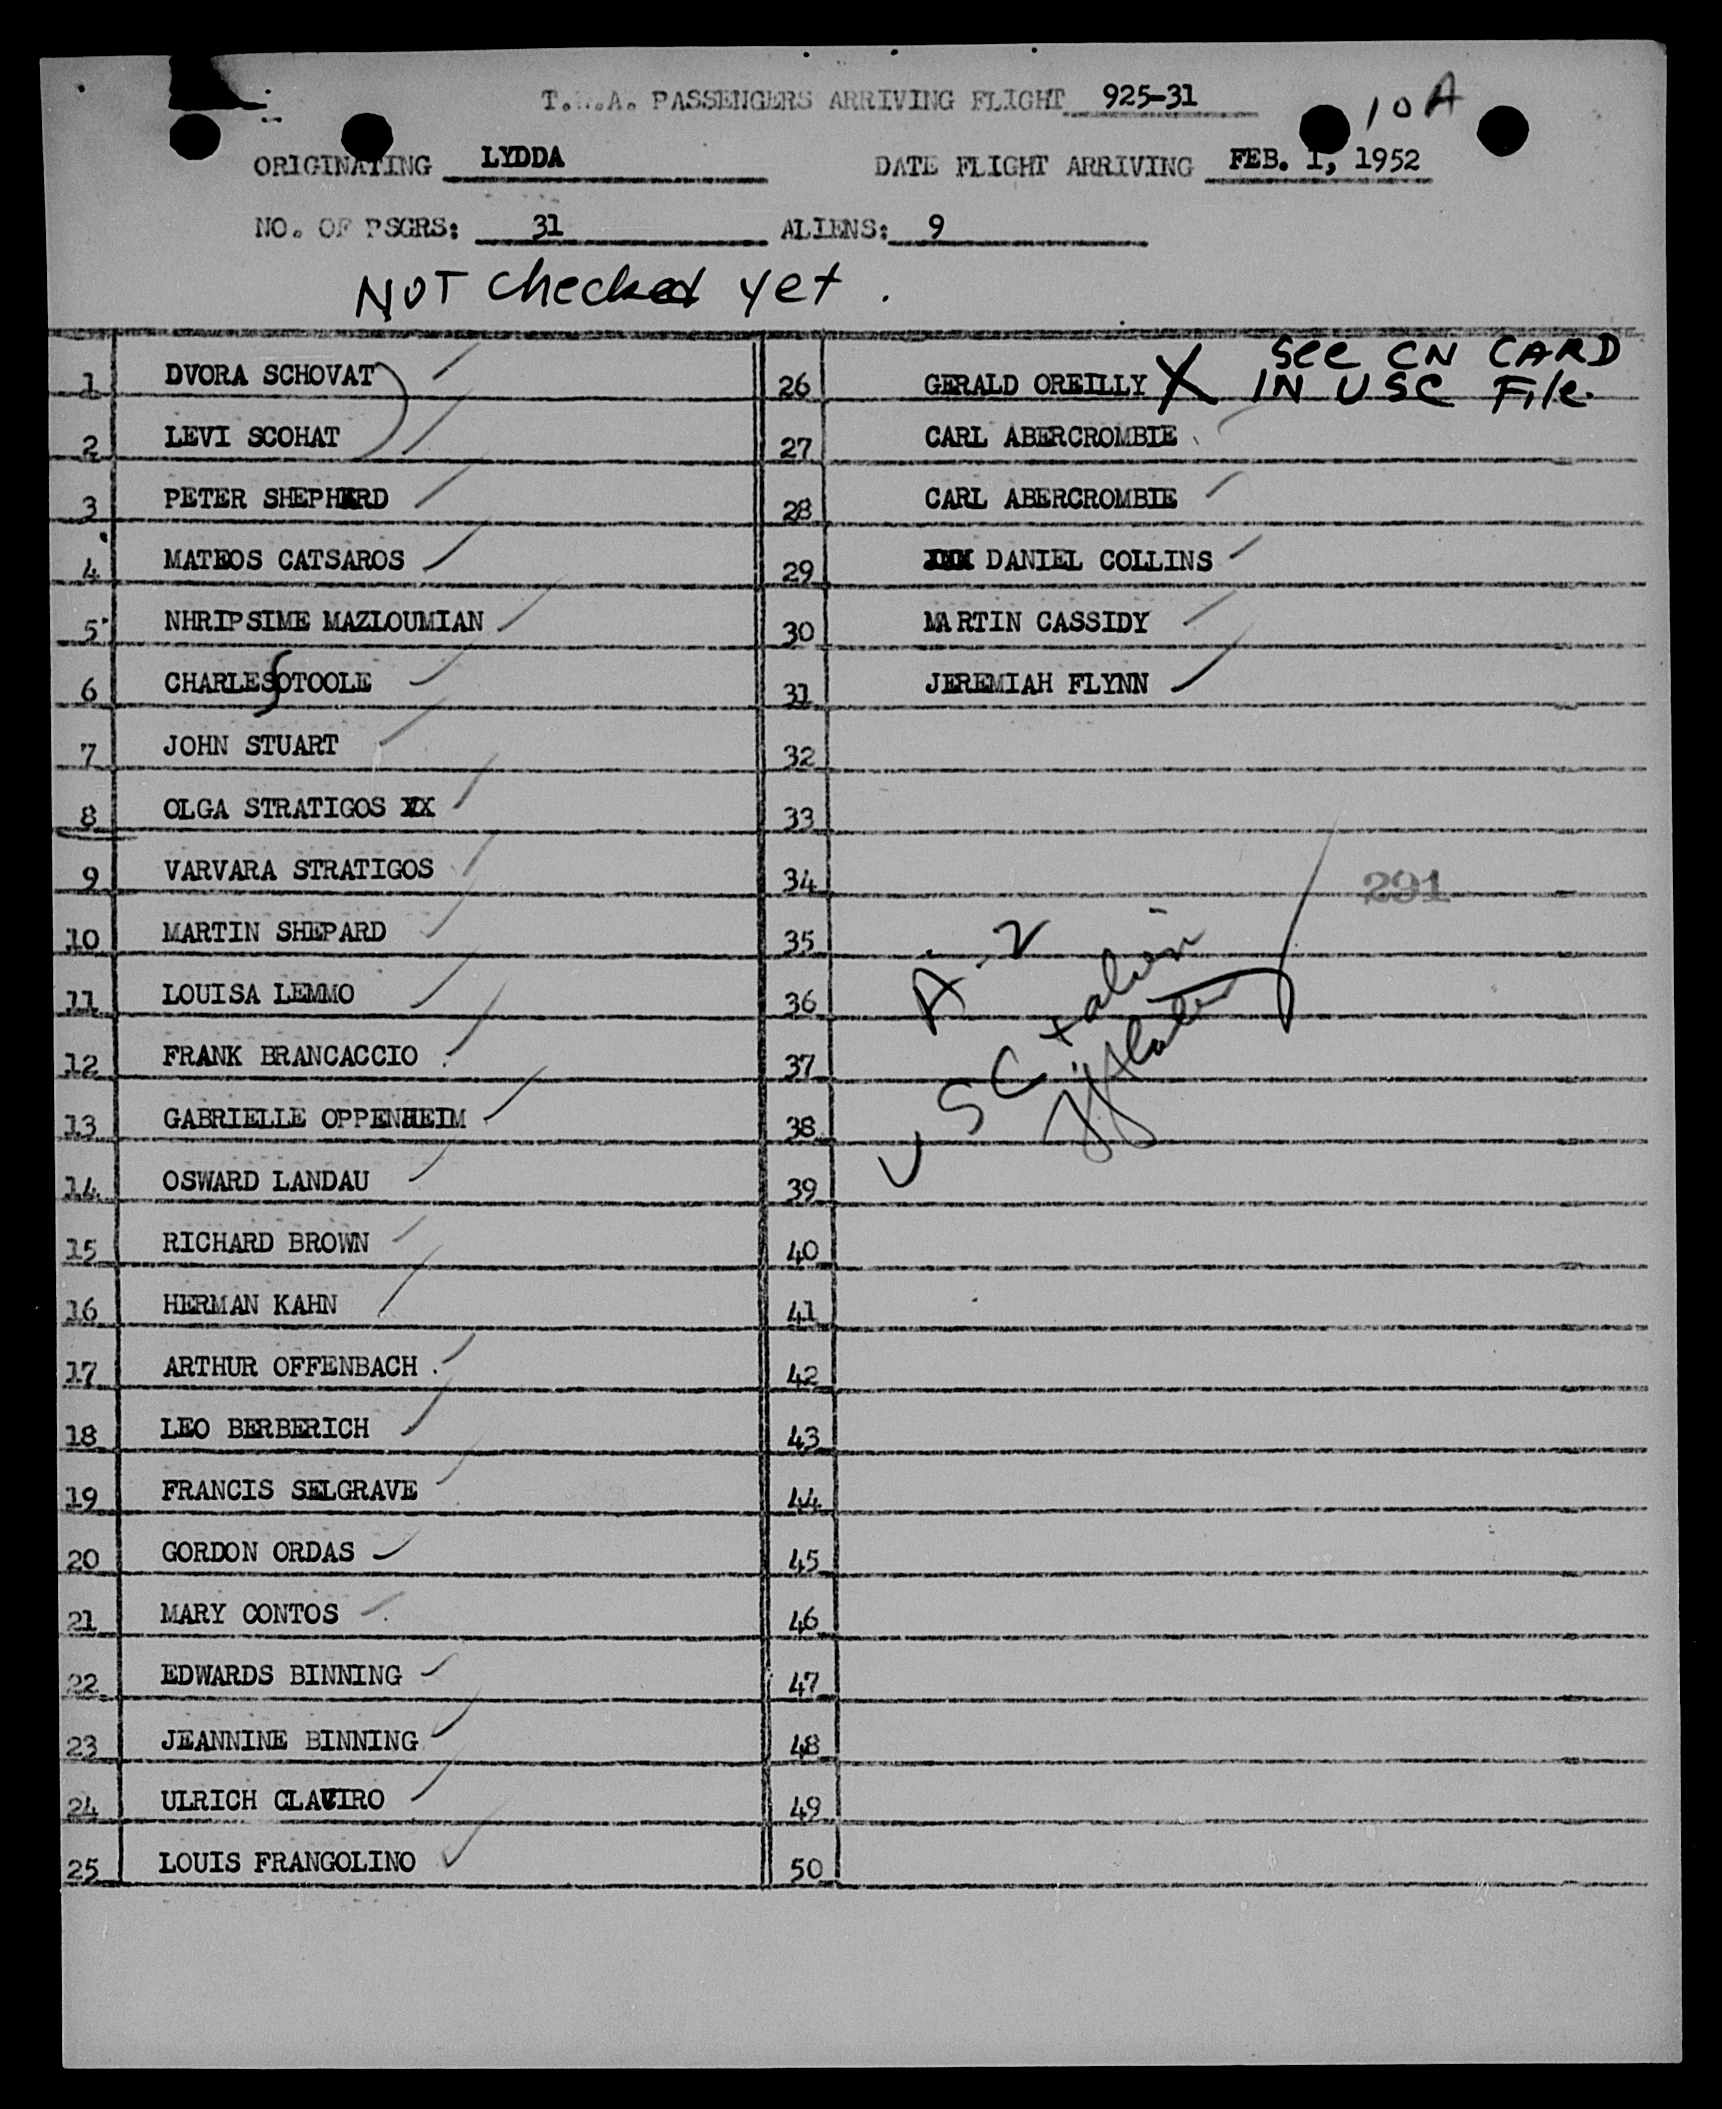 T.W.A. PASSENGERS ARRIVING FLIGHT 925-31
10 A
ORIGINATING LYDDA DATE FLIGHT ARRIVING FEB. 1, 1952
NO. OF PSGRS: 31 ALIENS: 9
NOT checked yet.
1 DVORA SCHOVAT
2 LEVI SCOHAT
3 PETER SHEPHERD
4 MATEOS CATSAROS
5 NHRIPSIME MAZLOUMIAN
6 CHARLES OTOOLE
7 JOHN STUART
8 OLGA STRATIGOS XX
9 VARVARA STRATIGOS
10 MARTIN SHEPARD
11 LOUISA LEMMO
12 FRANK BRANCACCIO
13 GABRIELLE OPPENHEIM
14 OSWARD LANDAU
15 RICHARD BROWN
16 HERMAN KAHN
17 ARTHUR OFFENBACH
18 LEO BERBERICH
19 FRANCIS SELGRAVE
20 GORDON ORDAS
21 MARY CONTOS
22 EDWARDS BINNING
23 JEANNINE BINNING
24 ULRICH CLAVIRO
25 LOUIS FRANGOLINO
26 GERALD OREILLY X SEE CN CARD
IN USC File.
27 CARL ABERCROMBIE
28 CARL ABERCROMBIE
29 DANIEL COLLINS
30 MARTIN CASSIDY
31 JEREMIAH FLYNN
32
33
34
291
35
36
37
38
39
40
41
42
43
44
45
46
47
48
49
50
A-2
USC + alien